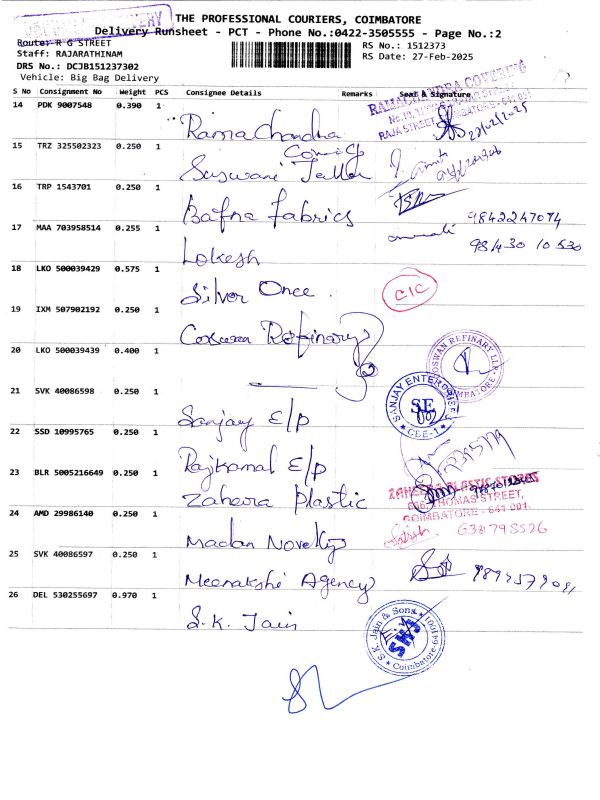 THE PROFESSIONAL COURIERS, COIMBATORE
Delivery Runsheet - PCT - Phone No.:0422-3505555 - Page No.:2
Route: R G STREET
RS No.: 1512373
Staff: RAJARATHINAM
RS Date: 27-Feb-2025
DRS No.: DCJB151237302
Vehicle: Big Bag Delivery
S No Consignment No Weight PCS Consignee Details Remarks Seal & Signature
14 PDK 9007548 0.390 1 Rama Chandra
RAMACHANDRA COVERING
RAJA STREET, COIMBATORE - 641 001
15 TRZ 325502323 0.250 1
16 TRP 1543701 0.250 1 Bafna fabrics
9842247074
17 MAA 703958514 0.255 1 Lokesh
98430 10530
18 LKO 500039429 0.575 1 Silver Once
CIC
19 IXM 507902192 0.250 1 Refinary
20 LKO 500039439 0.400 1
OSWAN REFINARY LLP
COIMBATORE
21 SVK 40086598 0.250 1 Sanjay E/p
SANJAY ENTERPRISES
SE
CBE-1
22 SSD 10995765 0.250 1 Rajkamal E/p
23 BLR 5005216649 0.250 1 Zaheera Plastic
ZAHEERA PLASTIC STORES
THOMAS STREET,
COIMBATORE - 641 001
24 AMD 29986140 0.250 1 Madan Novelty
25 SVK 40086597 0.250 1 Meenakshi Agency
26 DEL 530255697 0.970 1 S.K. Jain
S.K. Jain & Sons
SKJ
Coimbatore-641001